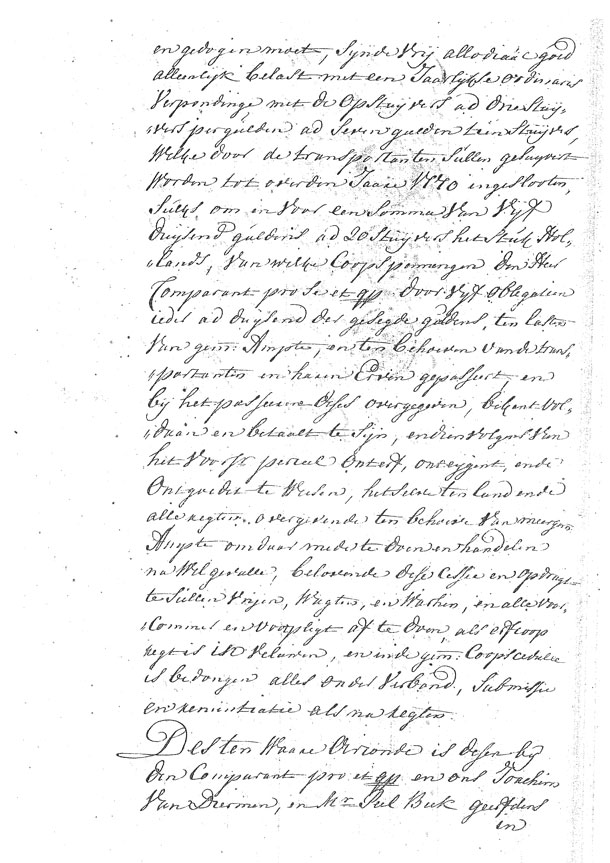 en gedogen moet, synde Vrij allodiaal goed
alleenlijk belast met een Jaarlijkse ordinaris
Verpondinge met de Opstuijvers ad drie Stuij„
„vers per gulden ad seven gulden tien Stuijvers,
Welke door de transportanten Sullen gesuyvert
Worden tot over den Jaare 1770 ingeslooten,
Sulks om en voor een Somma van Vijf
duijsend guldens ad 20 Stuijvers het Stuk Hol„
„lands, Van welke Coopspenningen den Heer
Comparant pro se et qq door Vijf obligatien
ieder ad duijsend der gesegde guldens, ten laste
Van gem: Ampte, en ten behoeven van de trans„
„portanten en haaren Erven gepasseert, en
bij het passeeren deses overgegeven, bekent vol„
„daan en betaalt te Sijn, en dien volgens Van
het Voorsz perceel Onterf, onteijgent, ende
Ontgoedet te Wesen, het selve ten land ende
alle regten overgevende ten behoeve Van meergem:
Ampte om daar mede te doen en handelen
na Welgevalle, beloovende dese Cessie en opdragt
te Sullen Vrijen, Wagten, en Waaren, en alle Voor„
„Commer en Voorpligt af te doen, als erfcoop
regt is in Veluwen, en in de gem: Coopscedulle
is bedongen alles onder Verband, Submissie
en renuntiatie als na regten.
Des ten Waare Oirconde is desen bij
den Comparant pro et qq en ons Joachim
Van Diermen, en Mr Peel Beek geerfdens
in